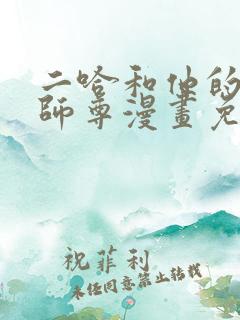 二哈和他的
師尊漫畫免
祝菲利
未经同意禁止转载